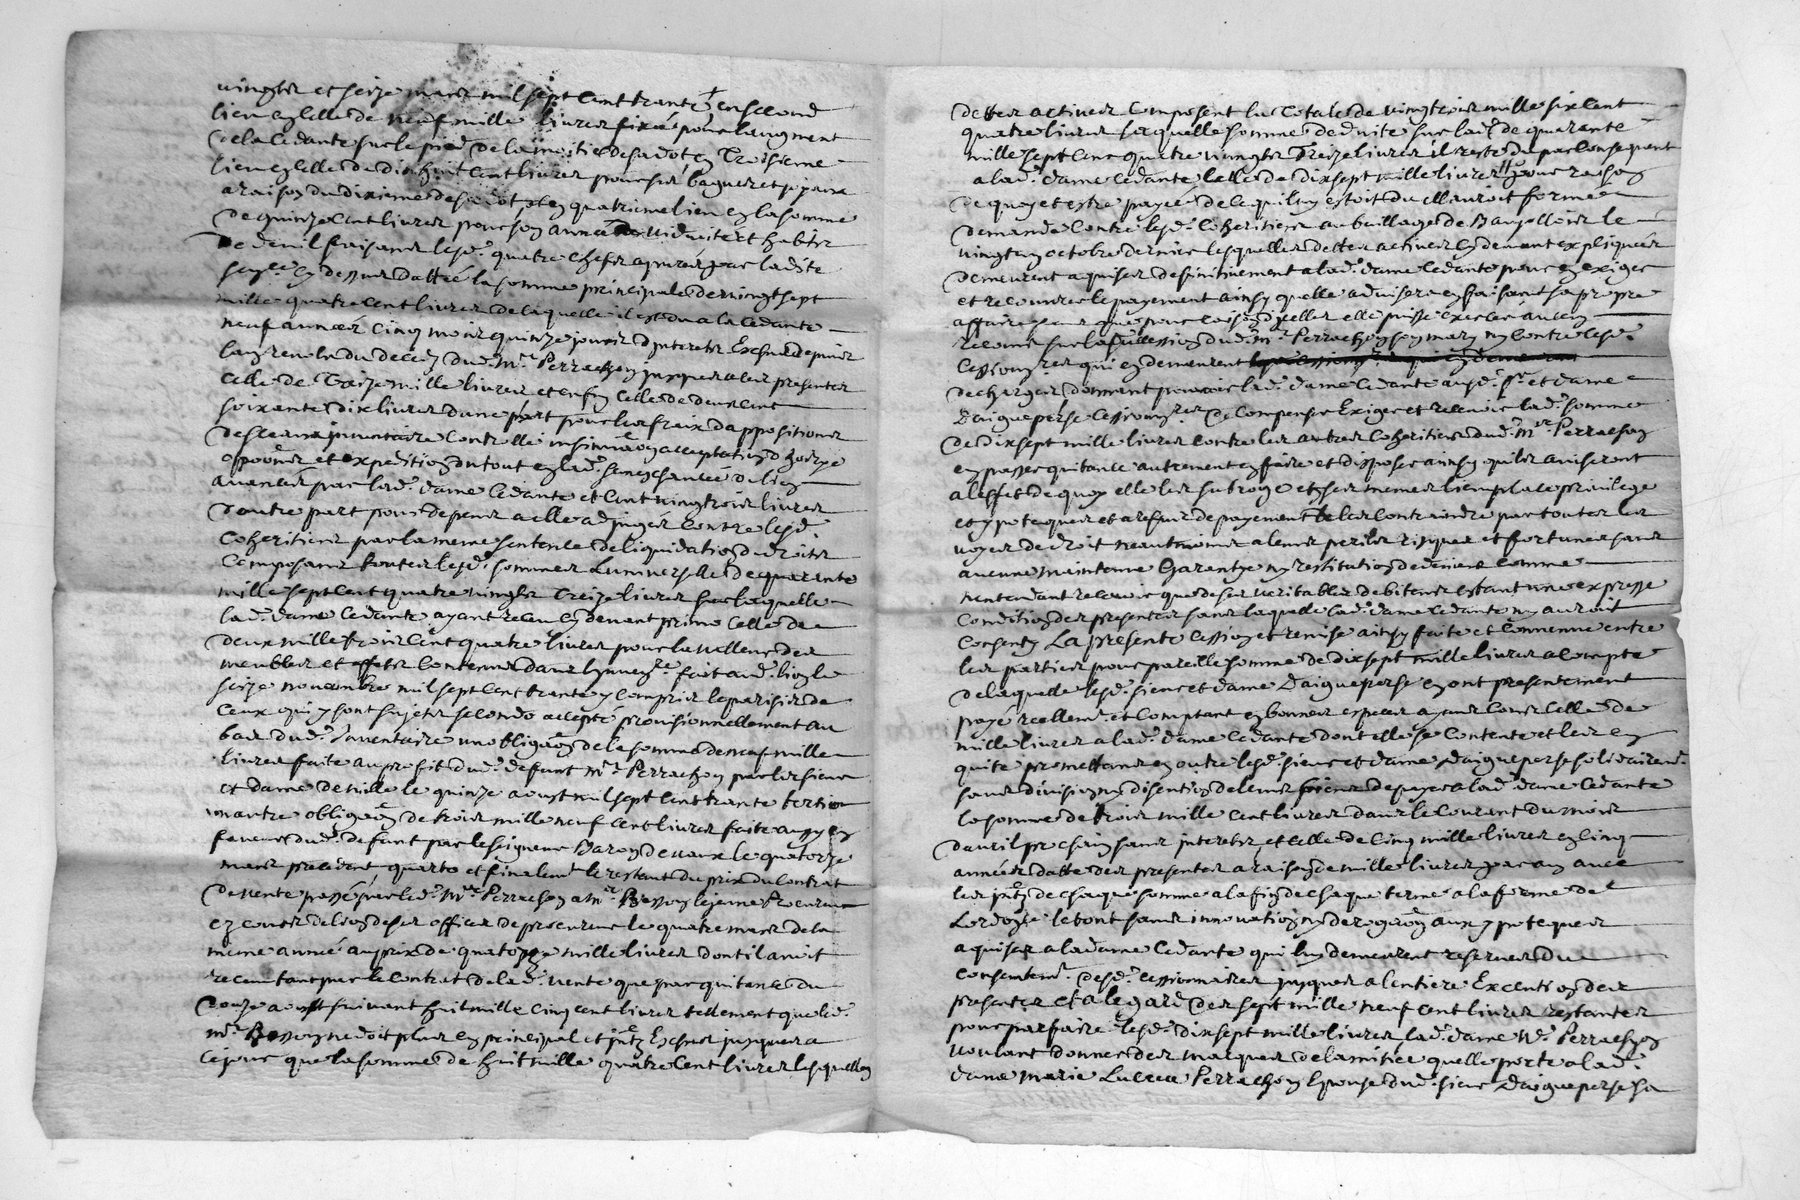 vingts et seize mars mil sept cent trente en second
lieu en celle de neuf mille livres fixée pour laugment
de la cedante sur le pied de la moitié de sa dot en troisieme
lieu en celle de dix huit cent livres pour ses bagues et joyaux
a raison du dixieme de sa dot et en quatrieme lieu en la somme
de quinze cent livres pour son année de viduité et habits
de deuil faisant lesd. quatre chefs ajugés par ladite
sen.ce cy dessus dattée la somme principale de vingt sept
mille quatre cent livres de laquelle il est du a la cedante
neuf années cinq mois quinze jours d'interets Echus depuis
lan revolu du deces dud. Mr. Perrachon jusques a les presentes
celle de treize mille livres et enfin celle de deux cent
soixante dix livres dune part pour les fraix dapposition
de scellés inventaire controlle insinuaon acceptation d'hoirye
et expedition du tout en lad. senechaussée de Lion
avancés par lad. dame cedante et cent vingt trois livres
dautre part pour depens a elle adjugés contre lesd.
coheritiers par la meme sentence de liquidation de droits
composant toutes lesd. sommes luniverselle de quarante
mille sept cent quatre vingts treize livres sur laquelle
lad. dame cedante ayant receu cy devant primo celle de
deux mille trois cent quatre livres pour la valleur des
meubles et effets contenus dans linven.re fait aud. Lion le
seize novembre mil sept cent trente y compris le parisis de
ceux qui y sont sujets secondo accepté provisionnellement au
bas dud. Inventaire un obligaon de la somme de neuf mille
livres faite au profit dud. defunt Mr. Perrachon par les sieur
et dame de Mille le quinze aoust mil sept cent trente tertio
un autre obligaon de trois mille neuf cent livres faite aussy en
faveur dud. defunt par le seigneur Baron de vaux le quatorze
mars precedent, quarto et finalemt. le restant du prix du contrat
de vente passé par led. Mr. Perrachon a Mr. Besson lejeune Procureur
ez cours de Lion de ses offices de procureur le quatre mars de la
meme année au prix de quatorze mille livres dont il avoit
receu tant par le contrat de lad. vente que par quitance du
douze aoust suivant huit mille cinq cent livres tellement que led.
Mr. Besson ne doit plus en principal et intz Echus jusques a
ce jour que la somme de huit mille quatre cent livres lesquelles
dettes actives composent la totale de vingt trois mille six cent
quatre livres laquelle somme deduite sur lad. de quarante
mille sept cent quatre vingts treize livres il reste du par consequent
a lad. dame cedante celle de dix sept mille livres pour raison
de quoy et estre payée de ce qui luy estoit du elle auroit formé
demande contre lesd. coheritiers au bailliage de Baujollois le
vingt un octobre dernier lesquelles dettes actives cy devant expliquées
demeurent aquises definitivement a lad. dame cedante pour en exiger
et recouvrer le payement ainsy quelle advisera en faisant sa propre
affaire sans que pour raison dicelles elle puisse exercer aucun
recours sur la succession dud. Mr. Perrachon son mary ny contre lesd.
cessionn.res qui en demeurent
dechargés donnant pouvoir lad. dame cedante auxd. sr. et dame
Daigueperse cessionn.res de compenser Exiger et recevoir lad. somme
de dix sept mille livres contre les autres coheritiers dud. Mr. Perrachon
en passer quitance autrement en faire et disposer ainsy quils aviseront
a leffet de quoy elle les subroge et ses memes lieu place privilege
et ypoteques et a refus de payement de les contraindre par toutes les
voyes de droit neantmoins a leurs perils risques et fortunes sans
aucune maintenue Garentye ny restitution de deniers comme
nentendant recevoir que de ses veritables debiteurs estant une expresse
condition des presentes sans laquelle lad. dame cedante ny auroit
consenty La presente cession et remise ainsy faite et convenue entre
les parties pour pareille somme de dix sept mille livres a compte
de laquelle lesd. sieur et dame Daigueperse en ont presentement
payé reellemt. et comptant en bonnes especes ayans cours celle de
mille livres a lad. dame cedante dont elle se contente et les en
quite promettans en outre lesd. sieur et dame Daigueperse solidairemt.
sans division ny discution de leurs biens de payer a lad. dame cedante
la somme de trois mille cent livres dans le courant du mois
davril prochain sans interets et celle de cinq mille livres en cinq
années datte des presentes a raison de mille livres par an avec
les intz de chaque somme a la fin de chaque terme a la forme de
Lordonce le tout sans innovation ny derogaon aux ypoteques
aquises a la dame cedante qui luy demeurent reservés du
consentemt. desd. cessionnaires jusques a lentiere Execution des
presentes et a legard des sept mille neuf cent livres restantes
pour parfaire lesd. dix sept mille livres lad. dame Ve. Perrachon
voulant donner des marques de lamitié quelle porte a lad.
dame Marie Lucrece Perrachon Epouse dud. sieur Daigueperse sa